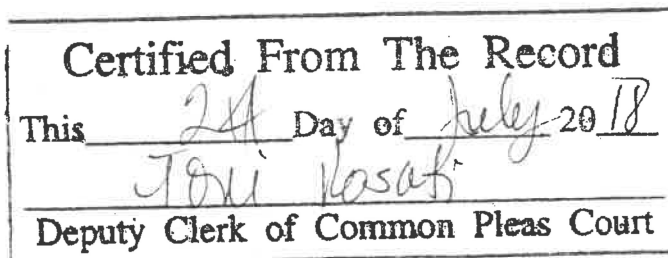 Certified From The Record
This 24 Day of July 2018
Toni Rosati
Deputy Clerk of Common Pleas Court